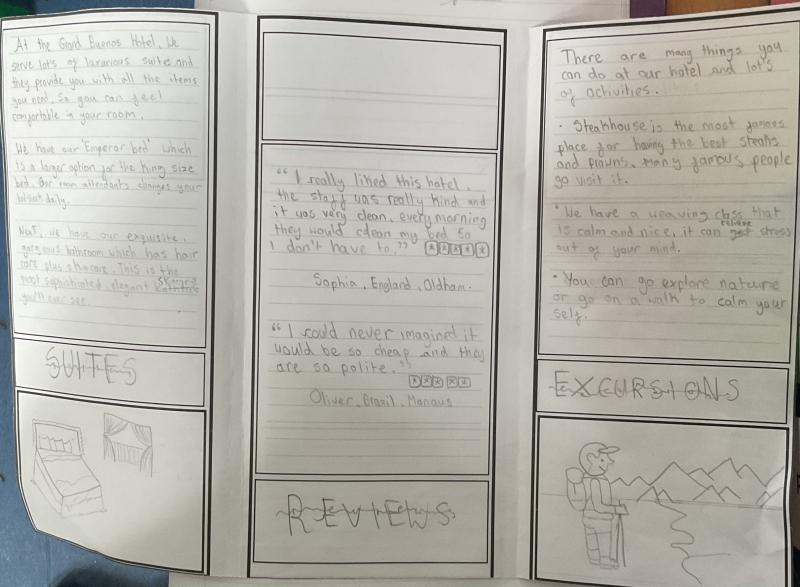 At the Grand Buenos Hotel, We
serve lot's of luxarious suites and
they provide you with all the items
you need. So you can feel
comfortable in your room.
We have our 'Emperor bed' which
is a larger option for the King size
bed. Our room attendants changes your
daily.
Next, we have our exquisite,
gorgeous bathroom which has hair
care plus skincare. This is the
most sophisticated, elegant
you'll ever see.
SUITES
"I really liked this hotel.
the staff was really kind and
it was very clean. every morning
they would cdean my bed so
I don't have to."
Sophia, England, Oldham.
"I could never imagined it
would be so cheap and they
are so polite."
Oliver, Brazil, Manaus
REVIEWS
There are many things you
can do at our hotel and lot's
of activities.
• Steakhouse is the most famous
place for having the best steaks
and prawns. Many famous people
go visit it.
• We have a weaving class that
relieve
is calm and nice, it can get stress
out of your mind.
• You can go explore nature
or go on a walk to calm your
self.
EXCURSIONS